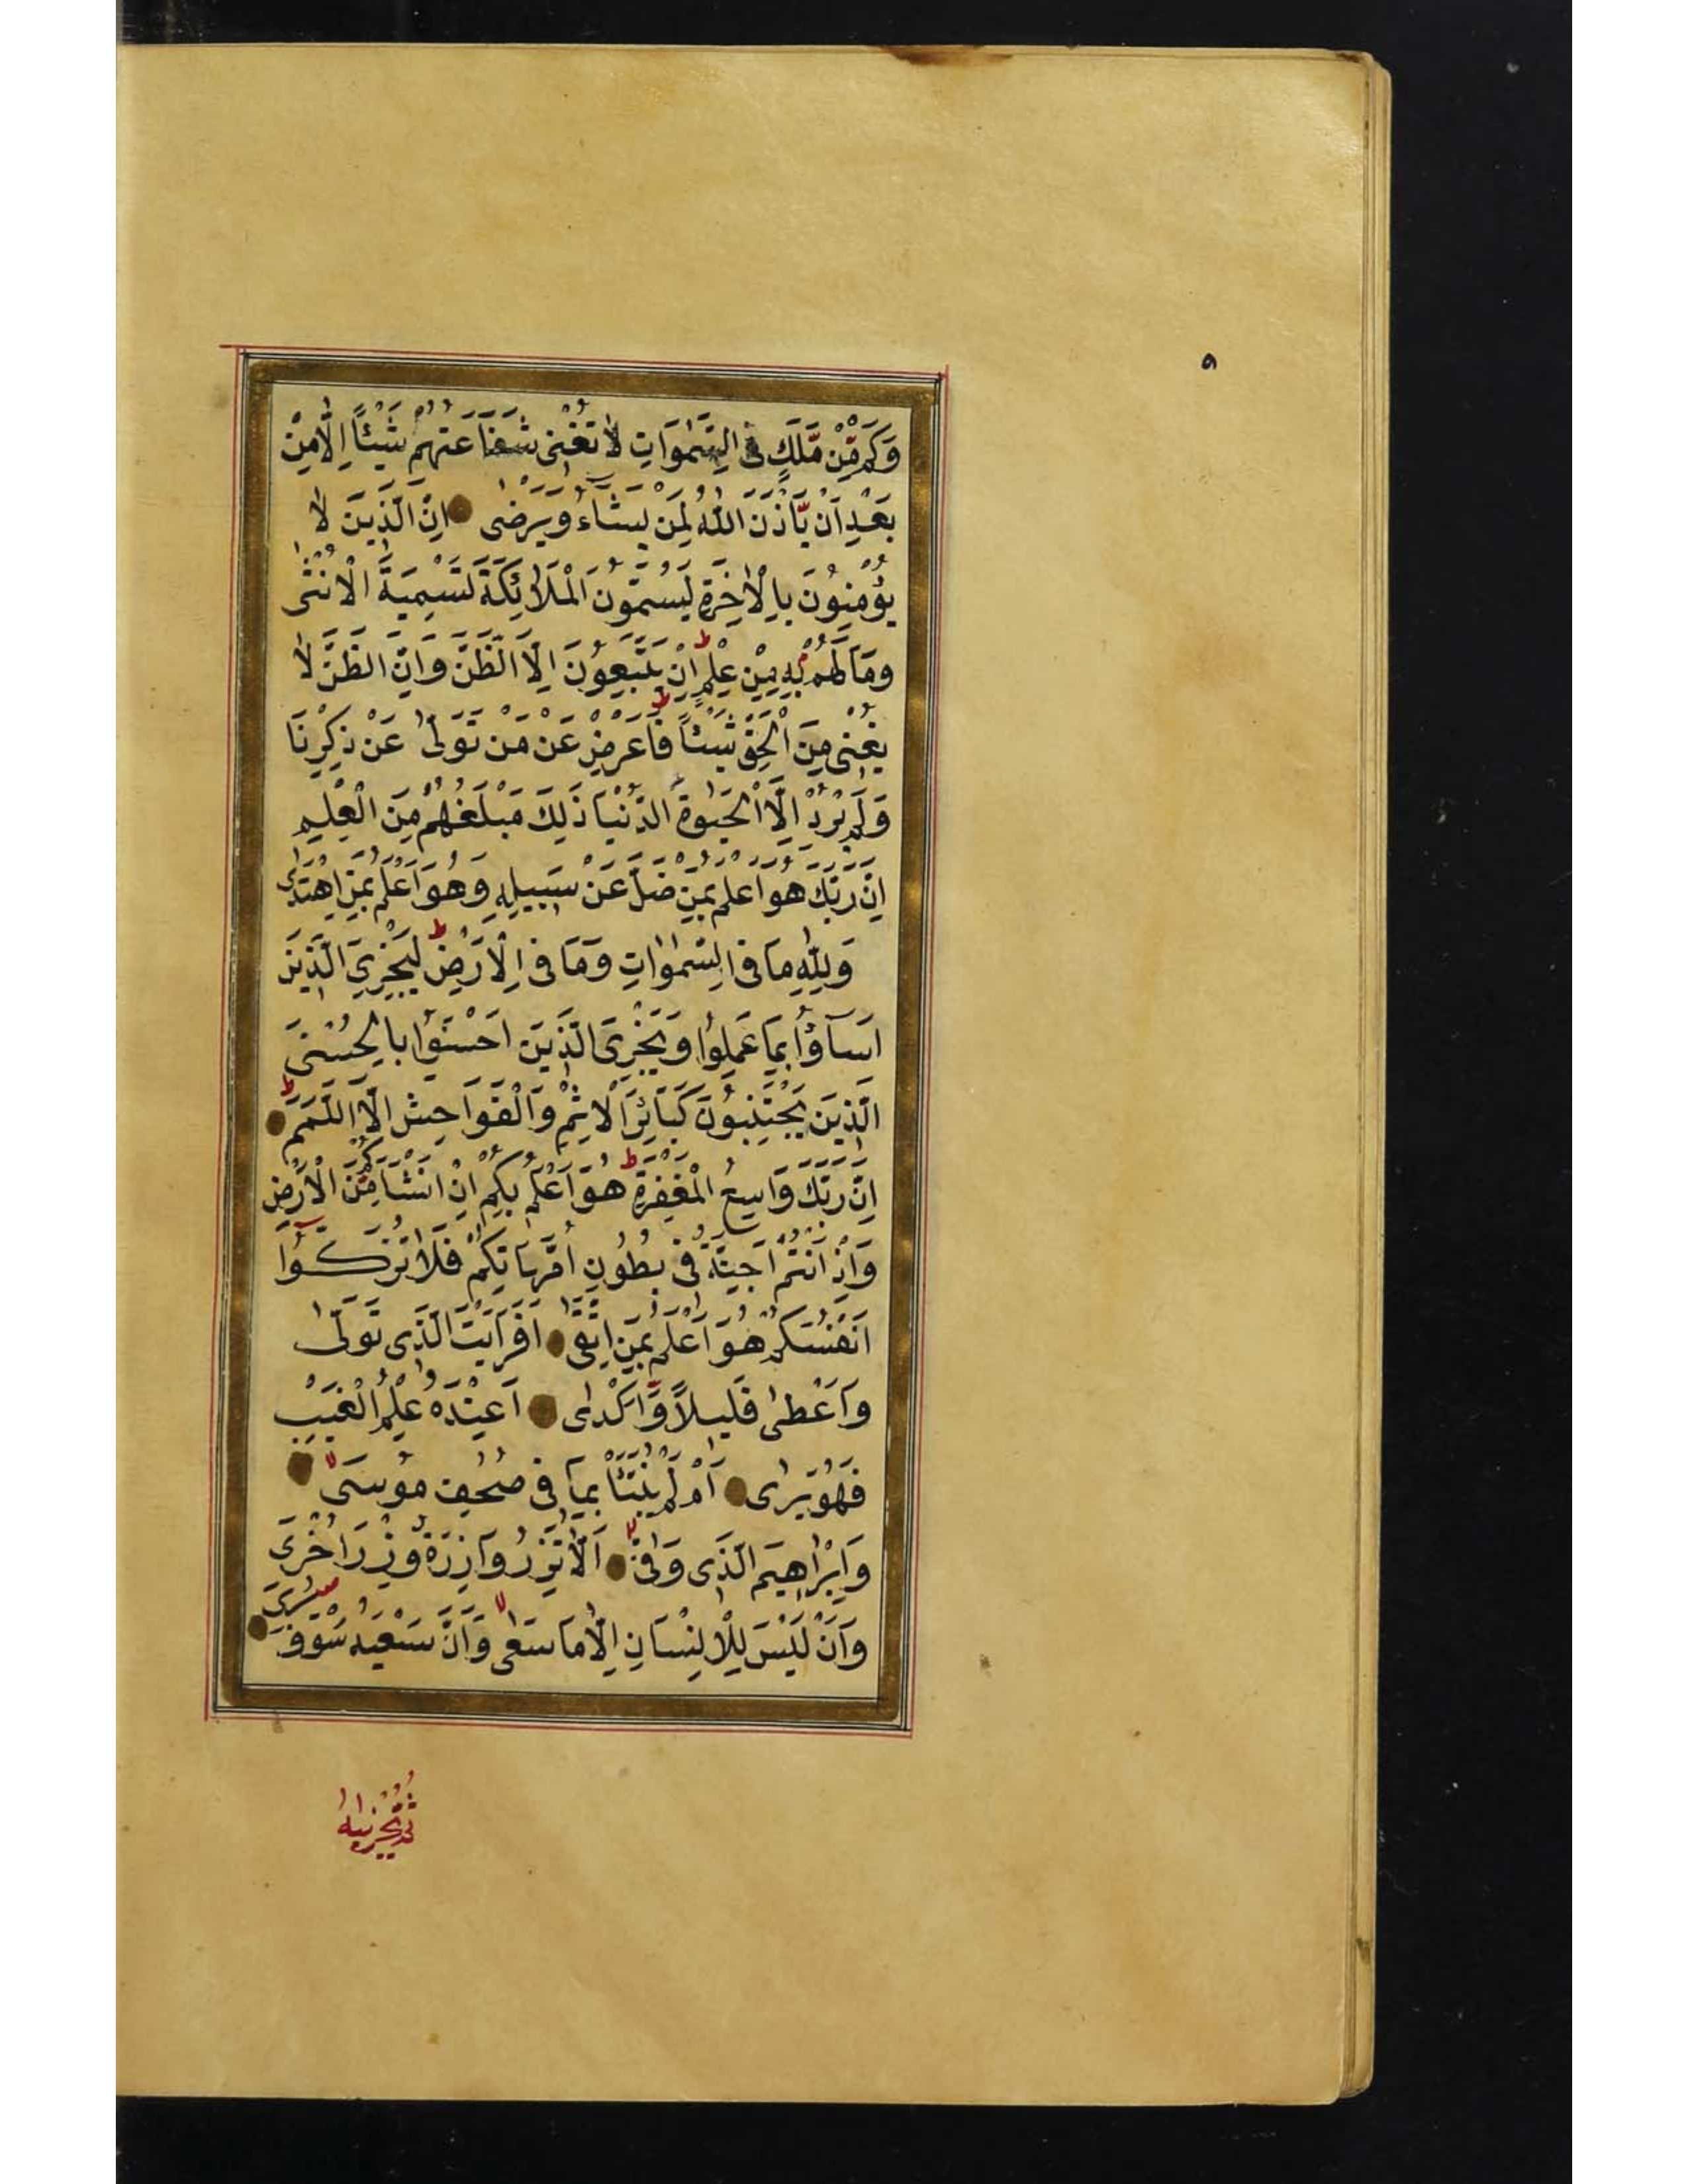 ٩
وَكَمْ مِّنْ مَّلَكٍ فِى السَّمٰوَاتِ لَا تُغْنِى شَفَاعَتُهُمْ شَيْئًا اِلَّا مِنْ
بَعْدِ اَنْ يَّاْذَنَ اللّٰهُ لِمَنْ يَشَآءُ وَيَرْضٰى اِنَّ الَّذِيْنَ لَا
يُؤْمِنُوْنَ بِالْاٰخِرَةِ لَيُسَمُّوْنَ الْمَلٰٓئِكَةَ تَسْمِيَةَ الْاُنْثٰى
وَمَا لَهُمْ بِهٖ مِنْ عِلْمٍ ط اِنْ يَتَّبِعُوْنَ اِلَّا الظَّنَّ وَاِنَّ الظَّنَّ لَا
يُغْنِى مِنَ الْحَقِّ شَيْئًا ط فَاَعْرِضْ عَنْ مَنْ تَوَلّٰى عَنْ ذِكْرِنَا
وَلَمْ يُرِدْ اِلَّا الْحَيٰوةَ الدُّنْيَا ذٰلِكَ مَبْلَغُهُمْ مِنَ الْعِلْمِ
اِنَّ رَبَّكَ هُوَ اَعْلَمُ بِمَنْ ضَلَّ عَنْ سَبِيلِهٖ وَهُوَ اَعْلَمُ بِمَنِ اهْتَدٰى
وَلِلّٰهِ مَا فِى السَّمٰوٰاتِ وَمَا فِى الْاَرْضِ ط لِيَجْزِىَ الَّذِيْنَ
اَسَآؤُا بِمَا عَمِلُوْا وَيَجْزِىَ الَّذِيْنَ اَحْسَنُوْا بِالْحُسْنٰى
الَّذِيْنَ يَجْتَنِبُوْنَ كَبَائِرَ الْاِثْمِ وَالْفَوَاحِشَ اِلَّا اللَّمَمَ ط
اِنَّ رَبَّكَ وَاسِعُ الْمَغْفِرَةِ ط هُوَ اَعْلَمُ بِكُمْ اِذْ اَنْشَاَكُمْ مِّنَ الْاَرْضِ
وَاِذْ اَنْتُمْ اَجِنَّةٌ فِى بُطُوْنِ اُمَّهَاتِكُمْ فَلَا تُزَكُّوْٓا
اَنْفُسَكُمْ هُوَ اَعْلَمُ بِمَنِ اتَّقٰى اَفَرَاَيْتَ الَّذِى تَوَلّٰى
وَاَعْطٰى قَلِيْلًا وَّاَكْدٰى اَعِنْدَهٗ عِلْمُ الْغَيْبِ
فَهُوَ يَرٰى اَمْ لَمْ يُنَبَّاْ بِمَا فِى صُحُفِ مُوْسٰى لا
وَاِبْرَاهِيْمَ الَّذِى وَفّٰى لا اَلَّا تَزِرُ وَازِرَةٌ وِزْرَ اُخْرٰى
وَاَنْ لَيْسَ لِلْاِنْسَانِ اِلَّا مَا سَعٰى لا وَاَنَّ سَعْيَهٗ سَوْفَ يُرٰى
ثُمَّ يُجْزٰيهُ